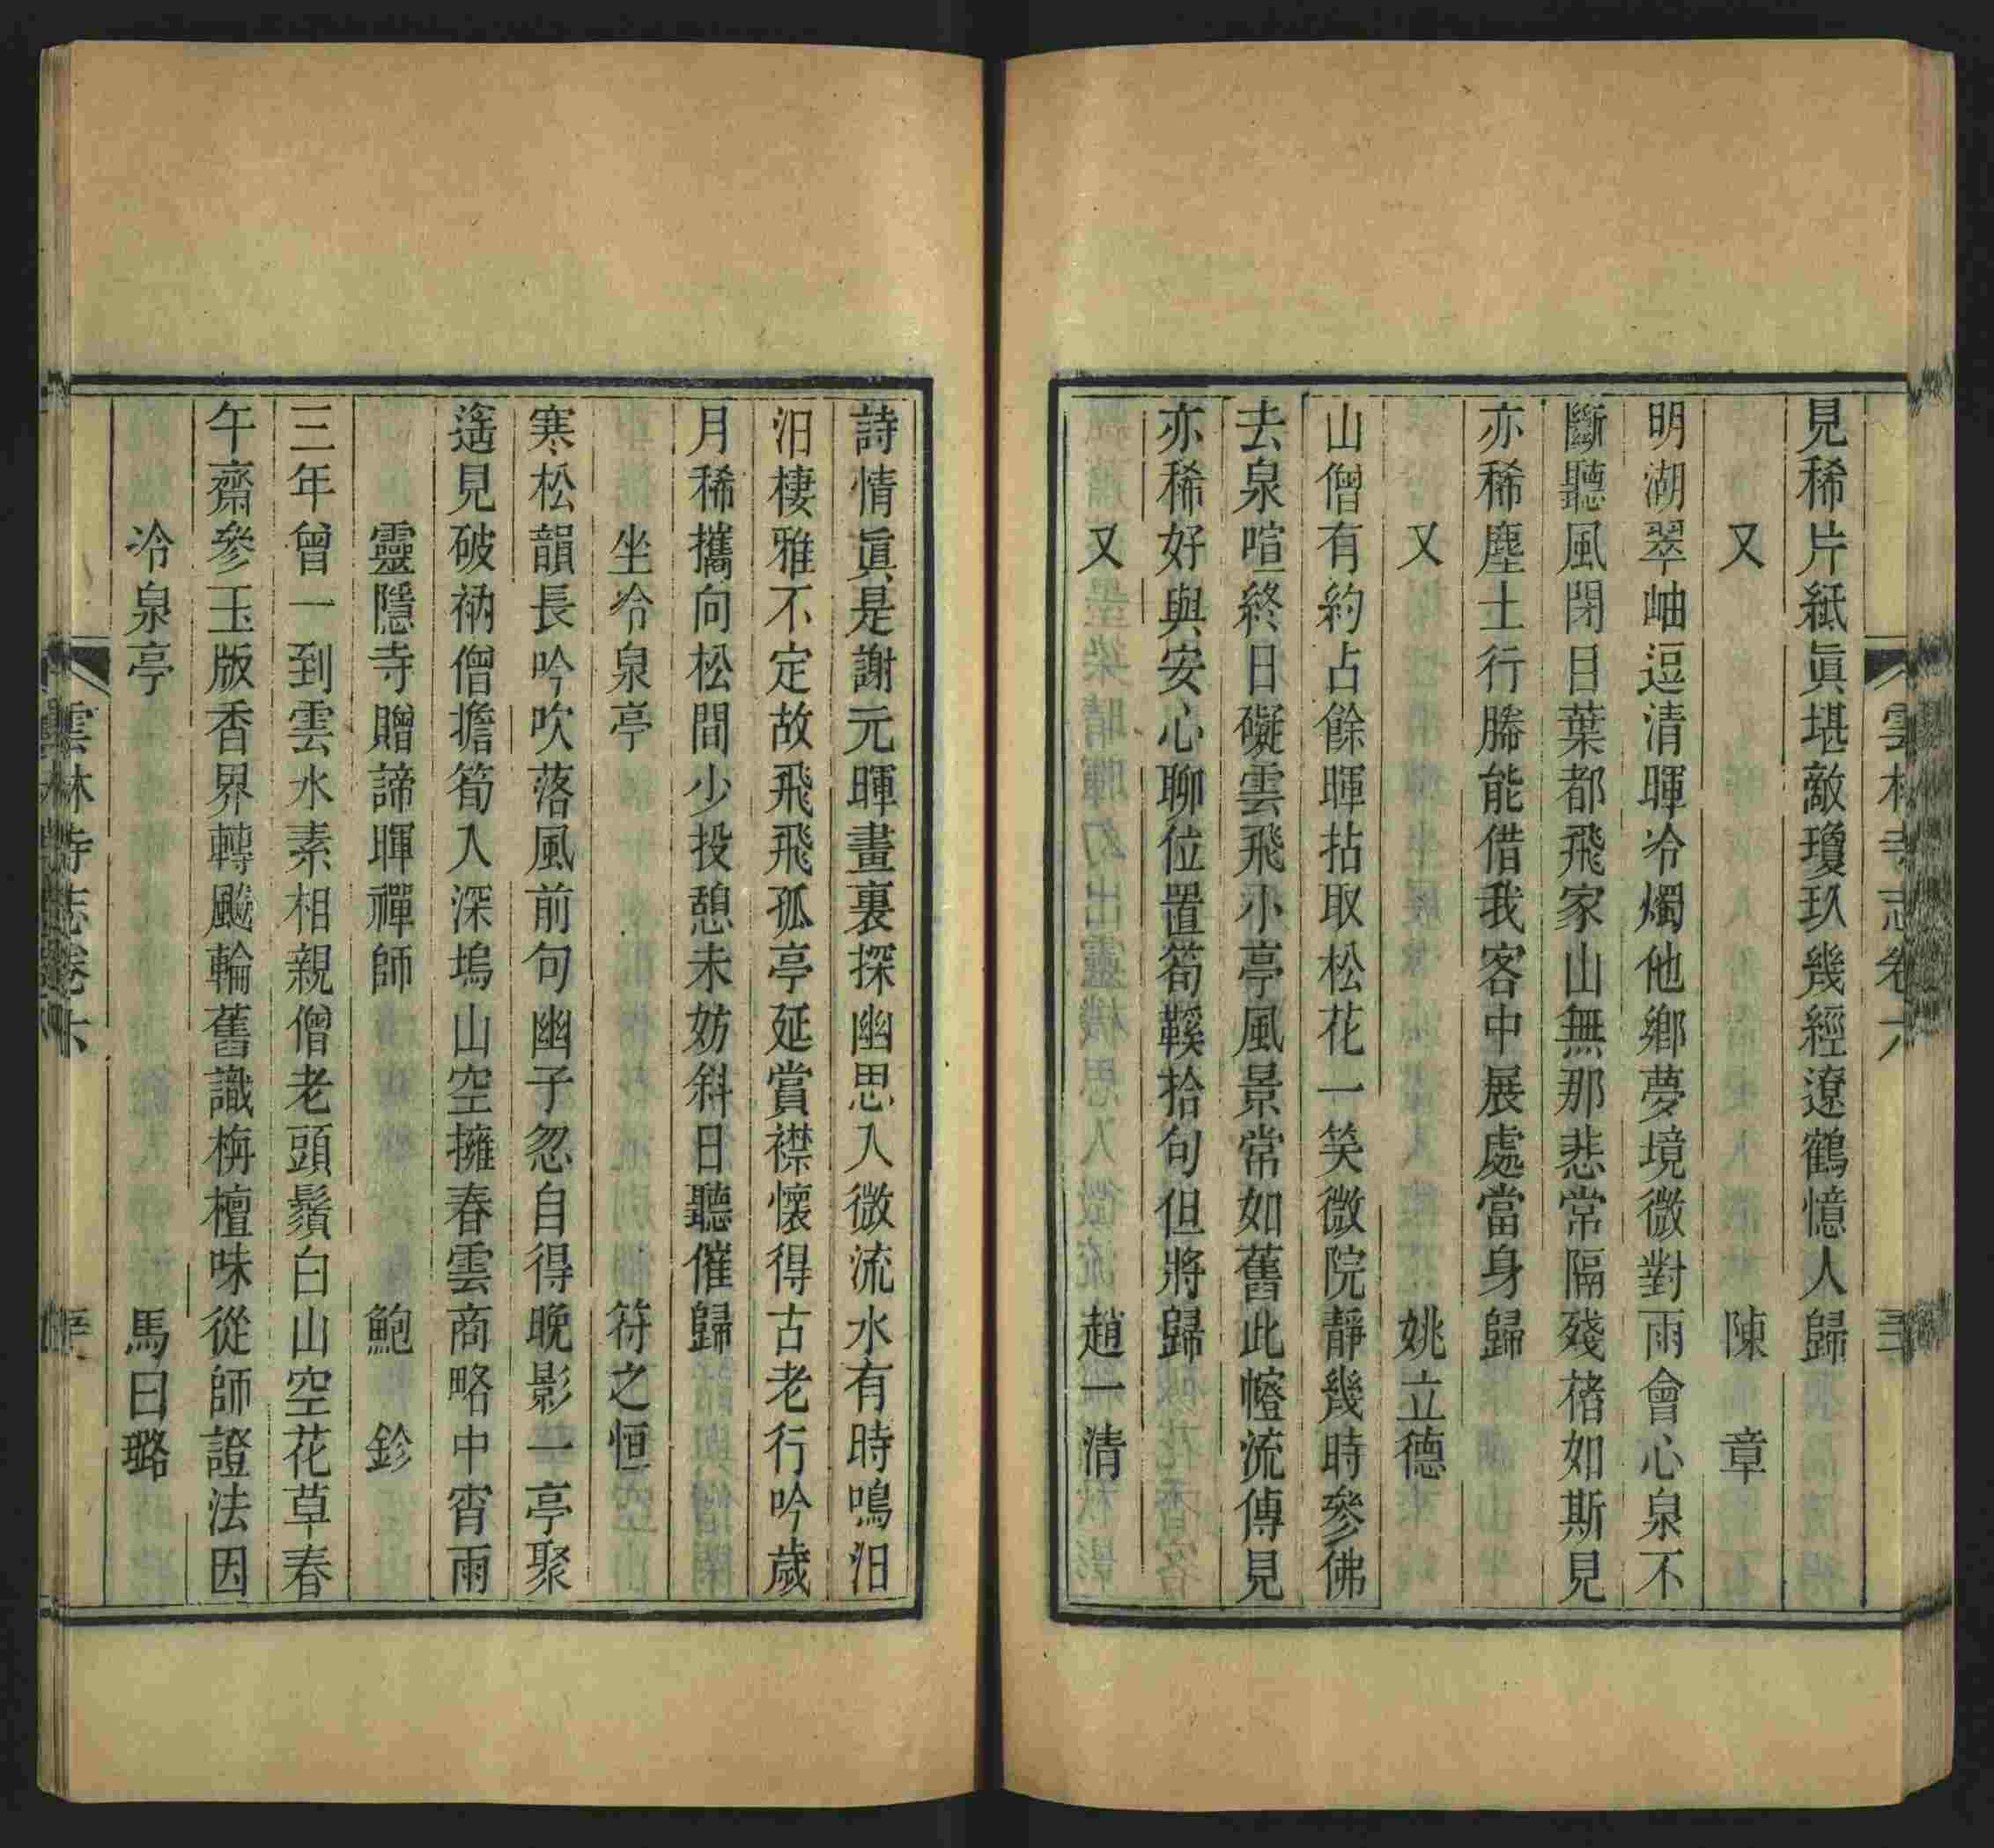 雲林寺志卷六
見稀片紙眞堪敵瓊玖幾經遼鶴憶人歸
又 陳章
明湖翠岫逗清暉冷燭他鄉夢境微對雨會心泉不
斷聽風閉目葉都飛家山無那悲常隔殘楮如斯見
亦稀塵土行縢能借我客中展處當身歸
又 姚立德
山僧有約占餘暉拈取松花一笑微院靜幾時參佛
去泉喧終日礙雲飛小亭風景常如舊此幢流傳見
亦稀好與安心聊位置筍鞵拾句但將歸
又 趙一清
詩情眞是謝元暉畫裏探幽思入微流水有時鳴汨
汨棲雅不定故飛飛孤亭延賞襟懷得古老行吟歲
月稀攜向松間少投憩未妨斜日聽催歸
坐冷泉亭 符之恒
寒松韻長吟吹落風前句幽子忽自得晚影一亭聚
遙見破衲僧擔筍入深塢山空擁春雲商略中宵雨
靈隱寺贈諦暉禪師 鮑鉁
三年曾一到雲水素相親僧老頭鬚白山空花草春
午齋參玉版香界轉飇輪舊識栴檀味從師證法因
冷泉亭 馬曰璐
雲林寺志卷六